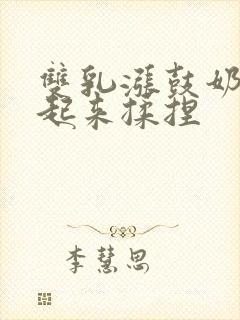 雙乳漲鼓奶
起來揉捏
李慧思